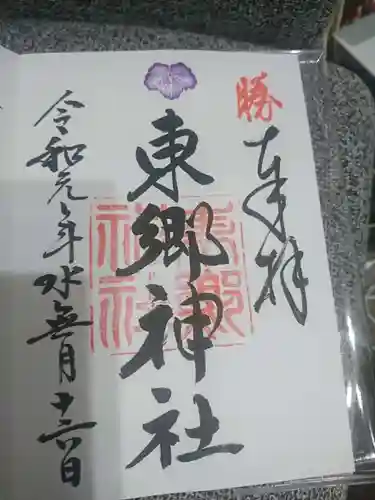 勝
奉拝
東郷神社
東郷神社
令和元年水無月十六日